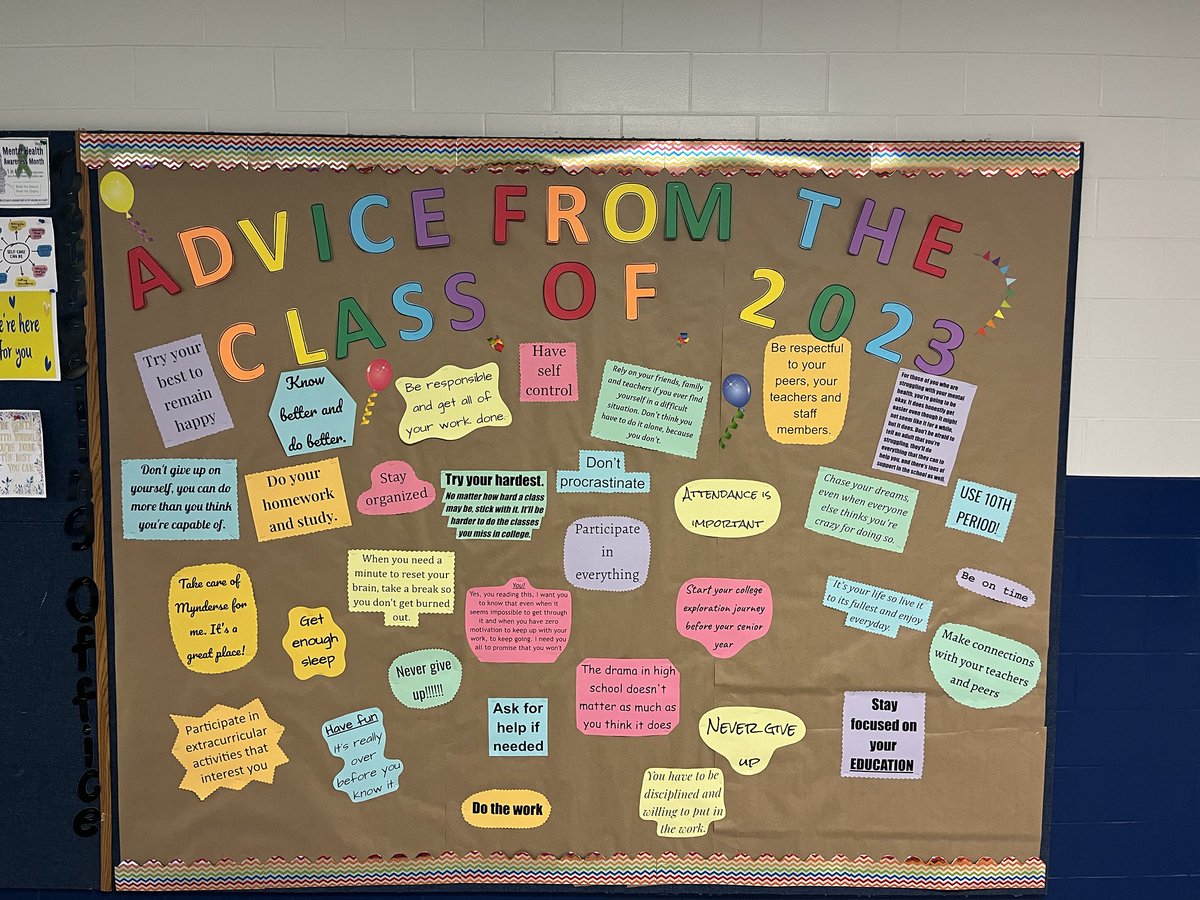 ADVICE FROM THE
CLASS OF 2023
Mental Health
Awareness Month
SELF-CARE
e're here
for you
Counseling Office
Try your
best to
remain
happy
Know
better and
do better.
Be responsible
and get all of
your work done.
Have
self
control
Rely on your friends, family
and teachers if you ever find
yourself in a difficult
situation. Don't think you
have to do it alone, because
you don't.
Be respectful
to your
peers, your
teachers and
staff
members.
For those of you who are
struggling with your mental
health, you're going to be
okay. It does honestly get
easier even though it might
not seem like it for a while,
but it does. Don't be afraid to
tell an adult that you're
struggling, they'll do
everything that they can to
help you, and there's tons of
support in the school as well.
Don't give up on
yourself, you can do
more than you think
you're capable of.
Do your
homework
and study.
Stay
organized
Try your hardest.
No matter how hard a class
may be, stick with it. It'll be
harder to do the classes
you miss in college.
Don't
procrastinate
ATTENDANCE IS
IMPORTANT
Chase your dreams,
even when everyone
else thinks you're
crazy for doing so.
USE 10TH
PERIOD!
Participate
in
everything
Take care of
Mynderse for
me. It's a
great place!
Get
enough
sleep
When you need a
minute to reset your
brain, take a break so
you don't get burned
out.
You!
Yes, you reading this, I want you
to know that even when it
seems impossible to get through
it and when you have zero
motivation to keep up with your
work, to keep going. I need you
all to promise that you won't
Start your college
exploration journey
before your senior
year
It's your life so live it
to its fullest and enjoy
everyday.
Be on time
Never give
up!!!!!!
The drama in high
school doesn't
matter as much as
you think it does
Make connections
with your teachers
and peers
Participate in
extracurricular
activities that
interest you
Have fun
It's really
over
before you
know it.
Ask for
help if
needed
NEVER GIVE
UP
Stay
focused on
your
EDUCATION
Do the work
You have to be
disciplined and
willing to put in
the work.